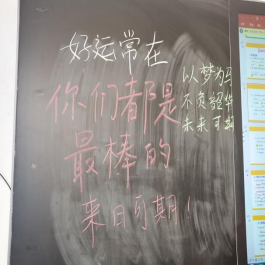 好运常在
你们都是
最棒的
来日可期！
以梦为马
不负韶华
未来可期